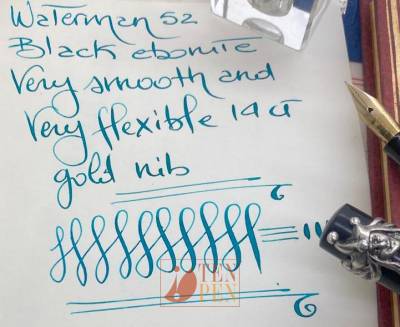 Waterman 52
Black ebonite
Very smooth and
Very flexible 14 ct
gold nib
TEN
PEN